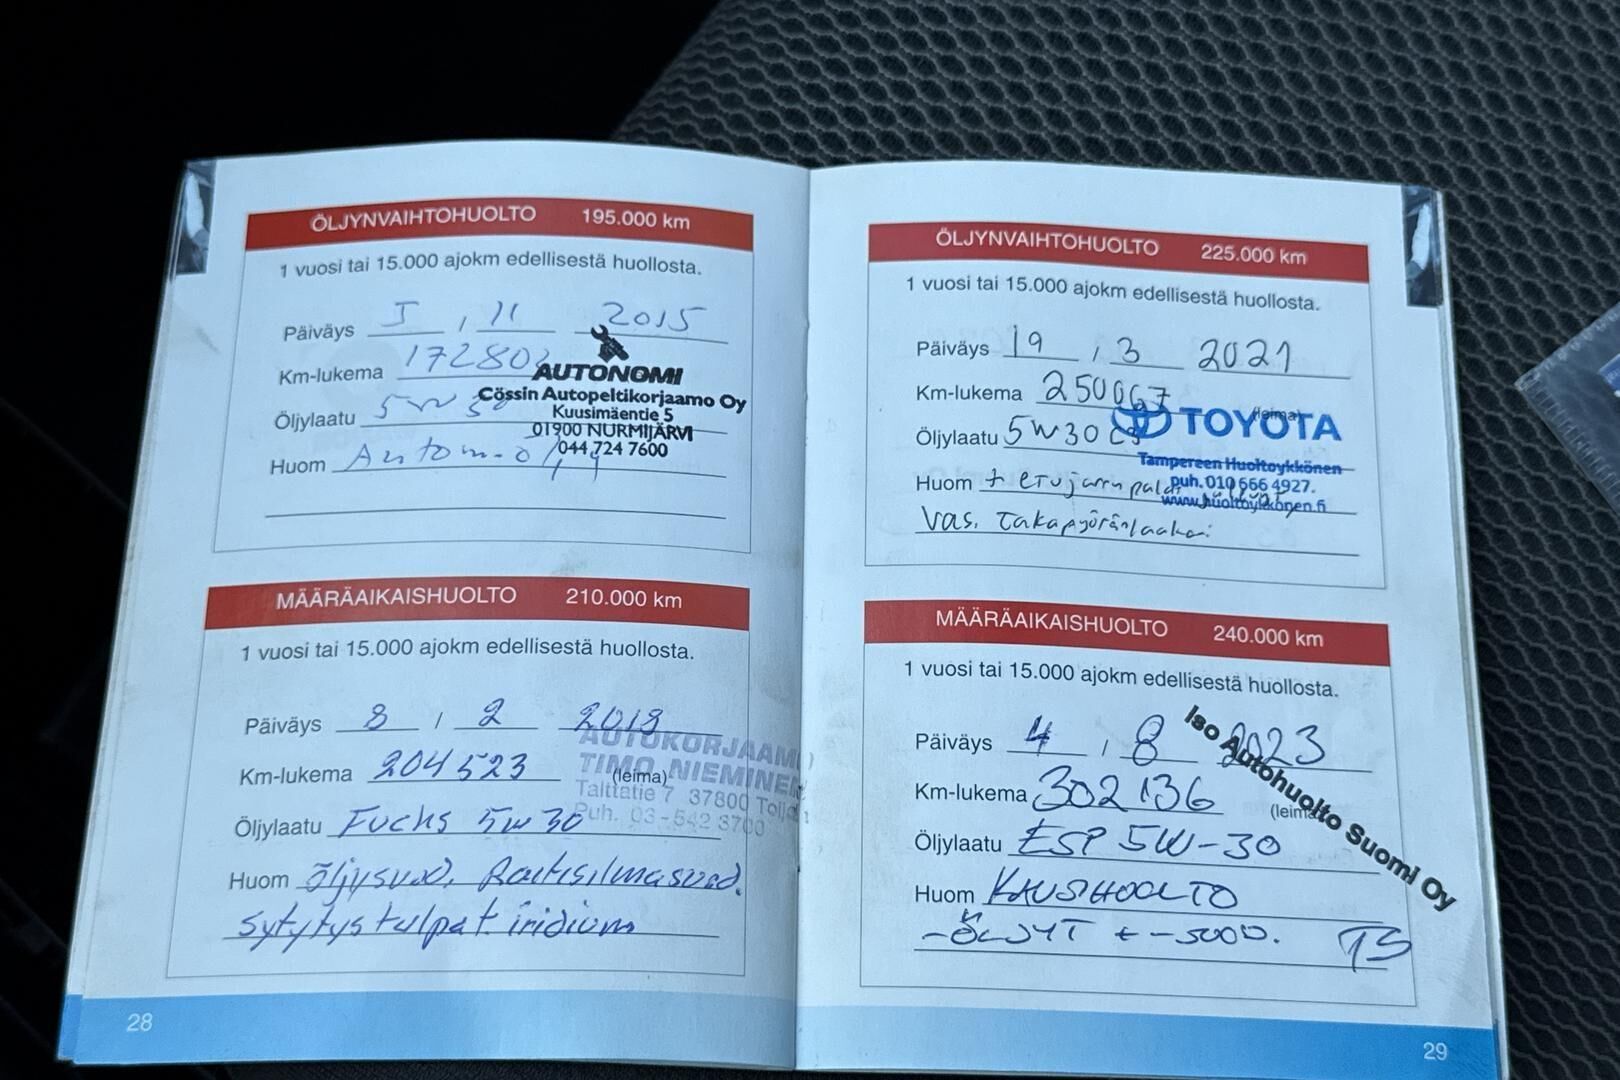 ÖLJYNVAIHTOHUOLTO 195.000 km
1 vuosi tai 15.000 ajokm edellisestä huollosta.
Päiväys 5 / 11 2015
Km-lukema 172802
Öljylaatu 5W 30
Huom
AUTONOMI
Cössin Autopeltikorjaamo Oy
Kuusimäentie 5
01900 NURMIJÄRVI
044 724 7600
MÄÄRÄAIKAISHUOLTO 210.000 km
1 vuosi tai 15.000 ajokm edellisestä huollosta.
Päiväys 8 / 2 2018
Km-lukema 204523 (leima)
Öljylaatu Fuchs 5W30
Huom öljysuod, Raitisilmasuod.
sytytystulpat iridium
AUTOKORJAAMO
TIMO NIEMINEN
Talttatie 7 37800
Puh. 03-542 3700
28
ÖLJYNVAIHTOHUOLTO 225.000 km
1 vuosi tai 15.000 ajokm edellisestä huollosta.
Päiväys 19 / 3 2021
Km-lukema 250067 (leima)
Öljylaatu 5W30 C3
Huom + etujarrupalat
vas. takapyöränlaakeri
TOYOTA
Tampereen Huoltoykkönen
puh. 010 666 4927.
www.huoltoykkonen.fi
MÄÄRÄAIKAISHUOLTO 240.000 km
1 vuosi tai 15.000 ajokm edellisestä huollosta.
Päiväys 4 / 8 2023
Km-lukema 302136 (leima)
Öljylaatu ESP 5W-30
Huom KAUSIHUOLTO
-ÖLJYT + -SUOD. TS
Iso Autohuolto Suomi Oy
29